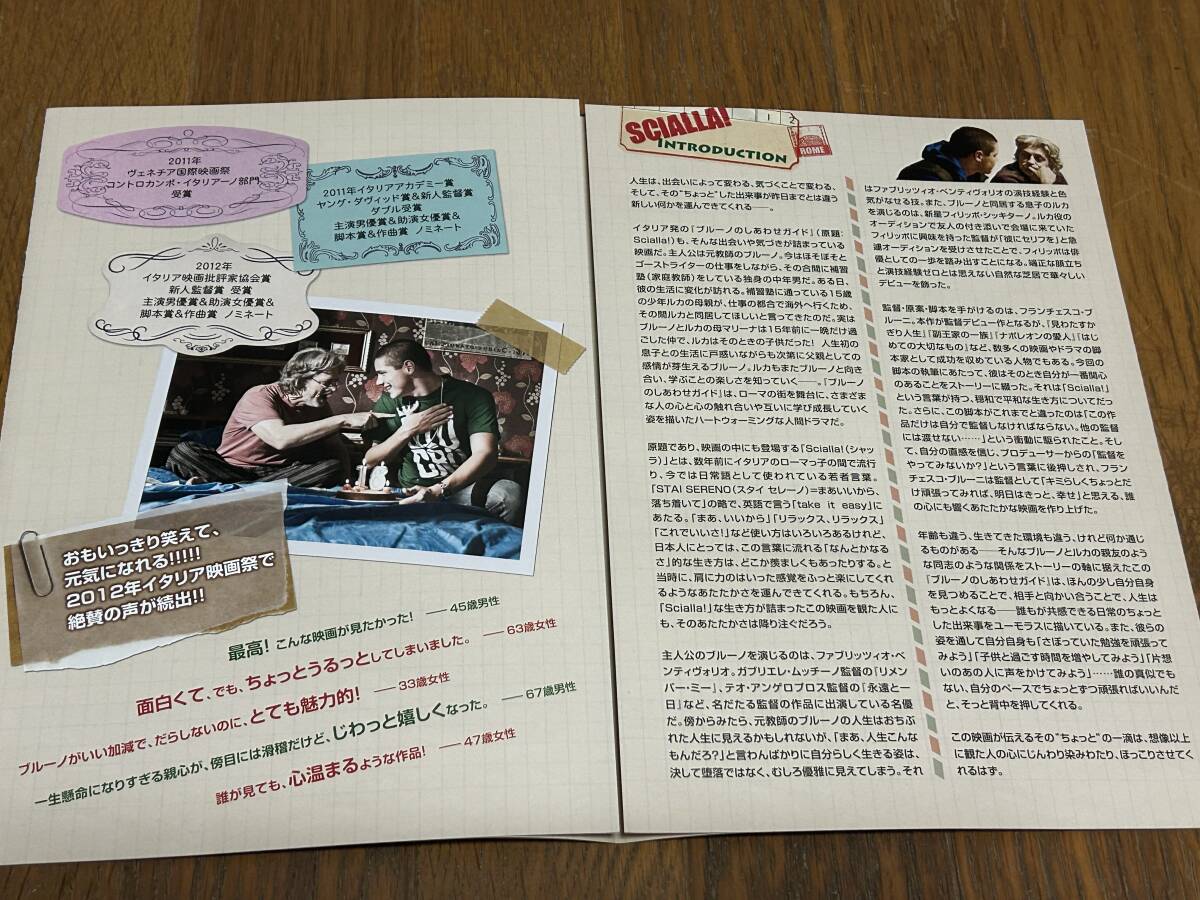 2011年
ヴェネチア国際映画祭
コントロカンポ・イタリアーノ部門
受賞
2011年イタリアアカデミー賞
ヤング・ダヴィッド賞&新人監督賞
ダブル受賞
主演男優賞&助演女優賞&
脚本賞&作曲賞 ノミネート
2012年
イタリア映画批評家協会賞
新人監督賞 受賞
主演男優賞&助演女優賞&
脚本賞&作曲賞 ノミネート
おもいっきり笑えて、
元気になれる!!!!!
2012年イタリア映画祭で
絶賛の声が続出!!
最高! こんな映画が見たかった! ── 45歳男性
面白くて、でも、ちょっとうるっとしてしまいました。 ── 63歳女性
ブルーノがいい加減で、だらしないのに、とても魅力的! ── 33歳女性
一生懸命になりすぎる親心が、傍目には滑稽だけど、じわっと嬉しくなった。 ── 67歳男性
誰が見ても、心温まるような作品! ── 47歳女性
SCIALLA!
INTRODUCTION
1 2
ROME
人生は、出会いによって変わる、気づくことで変わる、
そして、その“ちょっと”した出来事が昨日までとは違う
新しい何かを運んできてくれる──。
イタリア発の『ブルーノのしあわせガイド』(原題:
Scialla!)も、そんな出会いや気づきが詰まっている
映画だ。主人公は元教師のブルーノ。今はほそぼそと
ゴーストライターの仕事をしながら、その合間に補習
塾(家庭教師)をしている独身の中年男だ。ある日、
彼の生活に変化が訪れる。補習塾に通っている15歳
の少年ルカの母親が、仕事の都合で海外へ行くため、
その間ルカと同居してほしいと言ってきたのだ。実は
ブルーノとルカの母マリーナは15年前に一晩だけ過
ごした仲で、ルカはそのときの子供だった! 人生初の
息子との生活に戸惑いながらも次第に父親としての
感情が芽生えるブルーノ。ルカもまたブルーノと向き
合い、学ぶことの楽しさを知っていく──。『ブルーノ
のしあわせガイド』は、ローマの街を舞台に、さまざま
な人の心と心の触れ合いや互いに学び成長していく
姿を描いたハートウォーミングな人間ドラマだ。
原題であり、映画の中にも登場する「Scialla!(シャッ
ラ)」とは、数年前にイタリアのローマっ子の間で流行
り、今では日常語として使われている若者言葉。
「STAI SERENO(スタイ セレーノ)=まあいいから、
落ち着いて」の略で、英語で言う「take it easy」に
あたる。「まあ、いいから」「リラックス、リラックス」
「これでいいさ!」など使い方はいろいろあるけれど、
日本人にとっては、この言葉に流れる「なんとかなる
さ」的な生き方は、どこか羨ましくもあったりする。と
当時に、肩に力のはいった感覚をふっと楽にしてくれ
るようなあたたかさを運んできてくれる。もちろん、
「Scialla!」な生き方が詰まったこの映画を観た人に
も、そのあたたかさは降り注ぐだろう。
主人公のブルーノを演じるのは、ファブリッツィオ・ベ
ンティヴォリオ。ガブリエレ・ムッチーノ監督の『リメン
バー・ミー』、テオ・アンゲロプロス監督の『永遠と一
日』など、名だたる監督の作品に出演している名優
だ。傍からみたら、元教師のブルーノの人生はおちぶ
れた人生に見えるかもしれないが、「まあ、人生こんな
もんだろ?」と言わんばかりに自分らしく生きる姿は、
決して堕落ではなく、むしろ優雅に見えてしまう。それ
はファブリッツィオ・ベンティヴォリオの演技経験と色
気がなせる技。また、ブルーノと同居する息子のルカ
を演じるのは、新星フィリッポ・シッキターノ。ルカ役の
オーディションで友人の付き添いで会場に来ていた
フィリッポに興味を持った監督が「彼にセリフを」と急
遽オーディションを受けさせたことで、フィリッポは俳
優としての一歩を踏み出すことになる。端正な顔立ち
と演技経験ゼロとは思えない自然な芝居で華々しい
デビューを飾った。
監督・原案・脚本を手がけるのは、フランチェスコ・ブ
ルーニ。本作が監督デビュー作となるが、『見わたすか
ぎり人生』『副王家の一族』『ナポレオンの愛人』『はじ
めての大切なもの』など、数多くの映画やドラマの脚
本家として成功を収めている人物でもある。今回の
脚本の執筆にあたって、彼はそのとき自分が一番関心
のあることをストーリーに綴った。それは「Scialla!」
という言葉が持つ、穏和で平和な生き方についてだっ
た。さらに、この脚本がこれまでと違ったのは「この作
品だけは自分で監督しなければならない。他の監督
には渡せない……」という衝動に駆られたこと。そし
て、自分の直感を信じ、プロデューサーからの「監督を
やってみないか?」という言葉に後押しされ、フラン
チェスコ・ブルーニは監督として「キミらしくちょっとだ
け頑張ってみれば、明日はきっと、幸せ」と思える、誰
の心にも響くあたたかな映画を作り上げた。
年齢も違う、生きてきた環境も違う、けれど何か通じ
るものがある──そんなブルーノとルカの親友のよう
な同志のような関係をストーリーの軸に据えたこの
『ブルーノのしあわせガイド』は、ほんの少し自分自身
を見つめることで、相手と向かい合うことで、人生は
もっとよくなる──誰もが共感できる日常のちょっと
した出来事をユーモラスに描いている。また、彼らの
姿を通して自分自身も「さぼっていた勉強を頑張って
みよう」「子供と過ごす時間を増やしてみよう」「片想
いのあの人に声をかけてみよう」……誰の真似でも
ない、自分のペースでちょっとずつ頑張ればいいんだ
と、そっと背中を押してくれる。
この映画が伝えるその“ちょっと”の一滴は、想像以上
に観た人の心にじんわり染みわたり、ほっこりさせてく
れるはず。